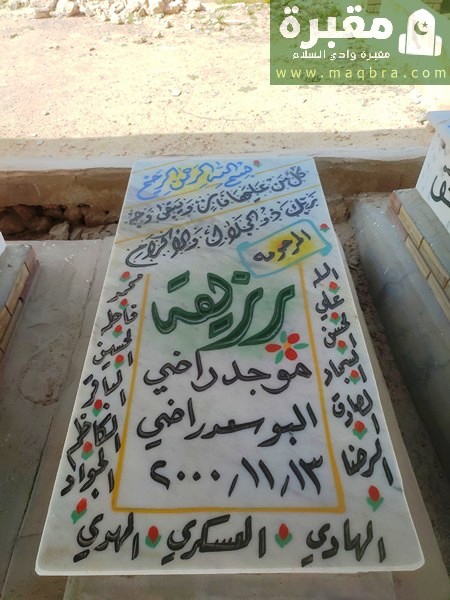 مقبرة
مقبرة وادي السلام
www.maqbra.com
بسم الله الرحمن الرحيم
كل من عليها فان ويبقى وجه
ربك ذو الجلال والاكرام
المرحومه
رزيقه
موجد راضي
البو سعد راضي
٢٠٠٠/١١/١٣
الله
محمد
علي
فاطمه
الحسن
الحسين
السجاد
الباقر
الصادق
الكاظم
الرضا
الجواد
الهادي
العسكري
المهدي